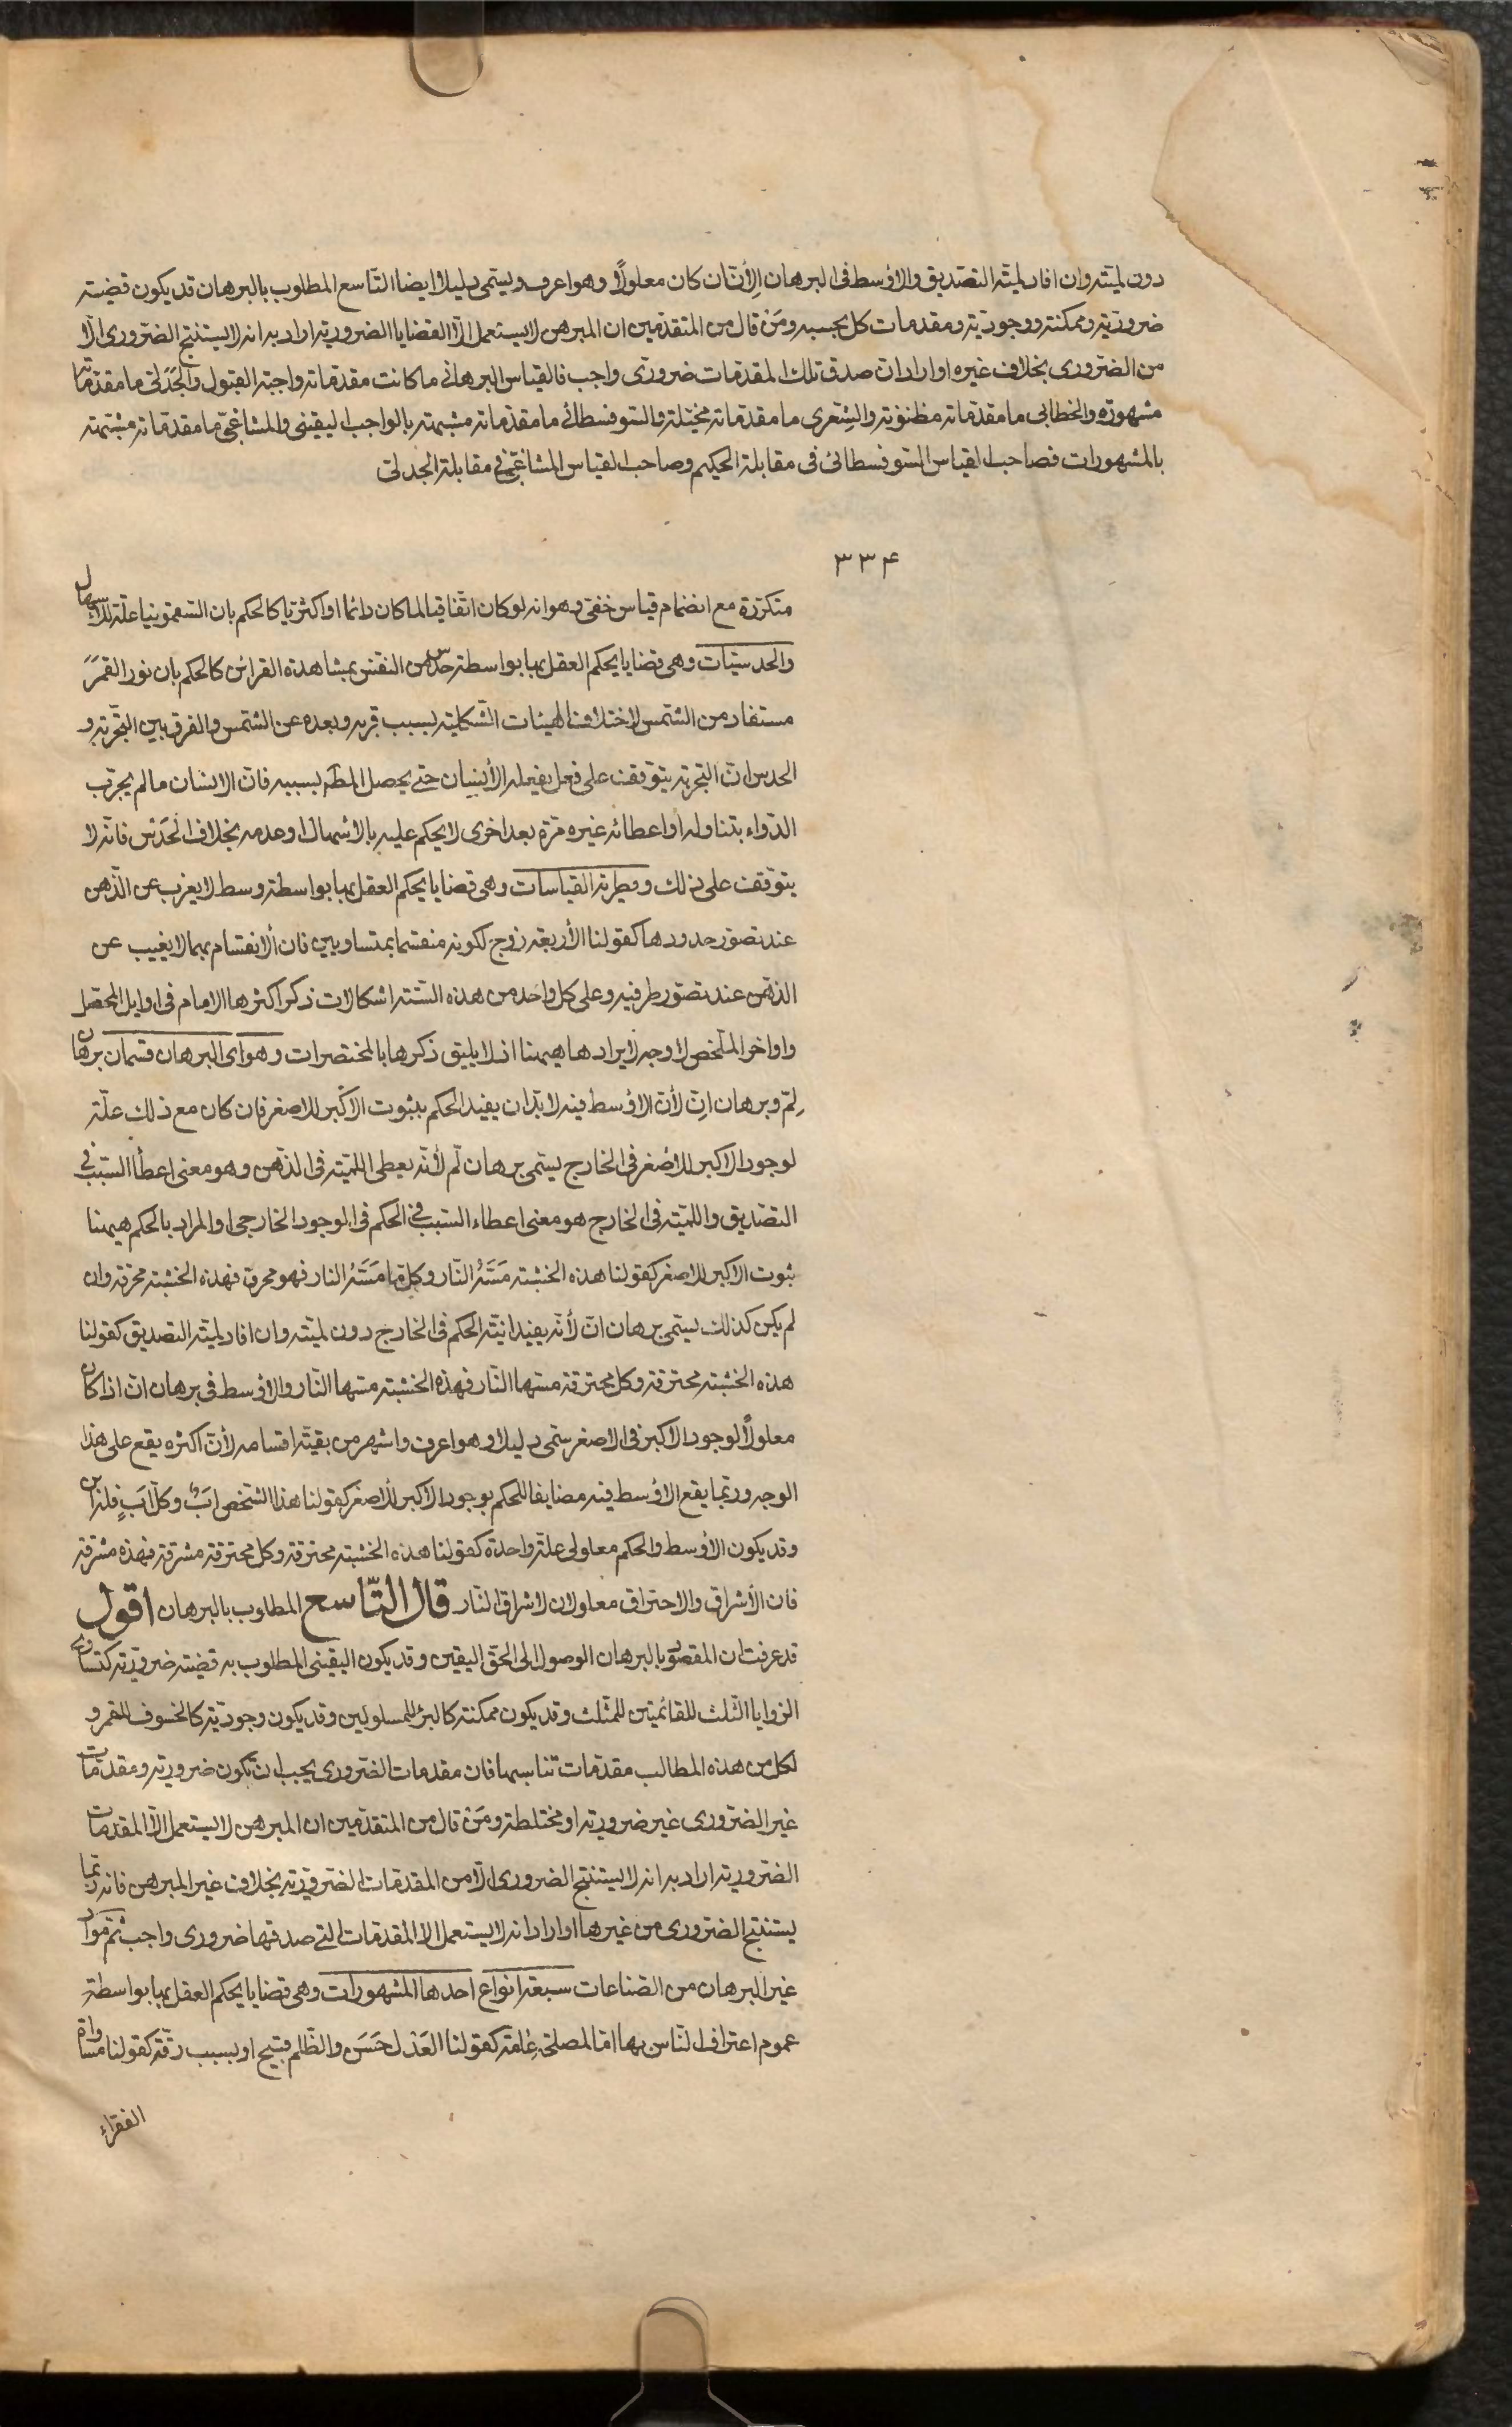 دون لميّته وان افاد لميّة التصديق والاوسط فى البرهان الإنّ ان كان معلولاً وهو اعرف ويسمى دليلا وايضا التاسع المطلوب بالبرهان قد يكون قضيته
ضرورية وممكنة ووجودية ومقدمات كل بحسبه ومَنْ قال من المتقدمين ان المبرهن لا يستعمل الّا القضايا الضرورية اراد به انه لا يستنتج الضرورى الّا
من الضرورى بخلاف غيره او اراد ان صدق تلك المقدمات ضرورى واجب فالقياس البرهانى ما كانت مقدماته واجبة القبول والجدلى ما مقدماته
مشهورة والخطابى ما مقدماته مظنونة والشعرى ما مقدماته مخيّلة والسوفسطائى ما مقدماته مشبهة بالواجب اليقينى والمشاغبى ما مقدماته مشبّهة
بالمشهورات فصاحب القياس السوفسطائى فى مقابلة الحكيم وصاحب القياس المشاغبى فى مقابلة الجدلى
٣٣۴
متكررة مع انضمام قياس خفى وهو انه لو كان اتفاقيا لما كان دائما او اكثريا كالحكم بان السقمونيا علة للاسهال
والحدسيّات وهى قضايا يحكم العقل بها بواسطة حدس من النفس بمشاهدة القرائن كالحكم بان نور القمر
مستفاد من الشمس لاختلاف الهيئات الشكلية بسبب قربه وبعده عن الشمس والفرق بين التجربة و
الحدس ان التجربة يتوقف على فعل يفعله الأنسان حتى يحصل المط بسببه فان الانسان ما لم يجرب
الدواء بتناوله او اعطائه غيره مرّة بعد اخرى لا يحكم عليه بالاسهال او عدمه بخلاف الحَدْس فانه لا
يتوقف على ذلك وفطرية القياسات وهى قضايا يحكم العقل بها بواسطة وسط لا يعزب عن الذهن
عند تصور حدودها كقولنا الأربعة زوج لكونه منقسما بمتساويين فان ألانقسام بهما لا يغيب عن
الذهن عند تصور طرفيه وعلى كل واحد من هذه الستة اشكالات ذكر اكثرها الامام فى اوايل المحصل
واواخر الملخص لا وجه لايرادها هيهنا اذ لا يليق ذكرها بالمختصرات وهو اى البرهان قسمان برهان
لِمّ وبرهان انّ لأن الاوسط فيه لا بدّ ان يفيد الحكم بثبوت الاكبر للاصغر فان كان مع ذلك علّة
لوجود الاكبر للاصغر فى الخارج يسمى برهان لم لأنّه يعطى اللميّة فى الذهن وهو معنى اعطأ السبب فى
التصديق واللميّة فى الخارج هو معنى اعطاء السبب فى الحكم فى الوجود الخارجى والمراد بالحكم هيهنا
ثبوت الاكبر للاصغر كقولنا هذه الخشبة مَسَّهُ النّار وكل ما مَسَّهُ النار فهو محرق فهذه الخشبة محرقة وان
لم يكن كذلك يسمى برهان انّ لأنّه يفيد انيّة الحكم فى الخارج دون لميّته وان افاد لميّة التصديق كقولنا
هذه الخشبة محترقة وكل محترقة مسّها النّار فهذه الخشبة مسّها النّار والاوسط فى برهان انّ اذا كان
معلولاً لوجود الاكبر فى الاصغر سمّى دليلا وهو اعرف واشهر من بقيّة اقسامه لأنّ اكثره يقع على هذا
الوجه وربّما يقع الاوسط فيه مضايفا للحكم بوجود الاكبر للأصغر كقولنا هذا الشخص ابٌ وكلّ ابٍ فله ابن
وقد يكون الأوسط والحكم معلولى علّة واحدة كقولنا هذه الخشبة محترقة وكل محترقة مشرقة فهذه مشرقة
فان الأشراق والاحتراق معلولان لاشراق النّار قال التّاسع المطلوب بالبرهان اقول
قد عرفت ان المقصود بالبرهان الوصول الى الحق اليقين وقد يكون اليقينى المطلوب به قضيته ضرورية كتساوى
الزوايا الثلث للقائمتين للمثلث وقد يكون ممكنة كالبرء للمسلولين وقد يكون وجودية كالخسوف للقمر و
لكل من هذه المطالب مقدّمات تناسبها فان مقدمات الضرورى يجب ان تكون ضرورية ومقدمات
غير الضرورى غير ضرورية او مختلطة ومَنْ قال من المتقدمين ان المبرهن لا يستعمل الّا المقدمات
الضرورية اراد به انه لا يستنتج الضرورى الّا من المقدمات الضرورية بخلاف غير المبرهن فانه ربّما
يستنتج الضرورى من غيرها او اراد انه لا يستعمل الا المقدمات التى صدقها ضرورى واجب ثمّ موادّ
غير البرهان من الصناعات سبعة انواع احدها المشهورات وهى قضايا يحكم العقل بها بواسطة
عموم اعتراف الناس بها امّا لمصلحة عامّة كقولنا العَدْل حَسَن والظّلم قبيح او بسبب رقّة كقولنا مساواة
الفقراء